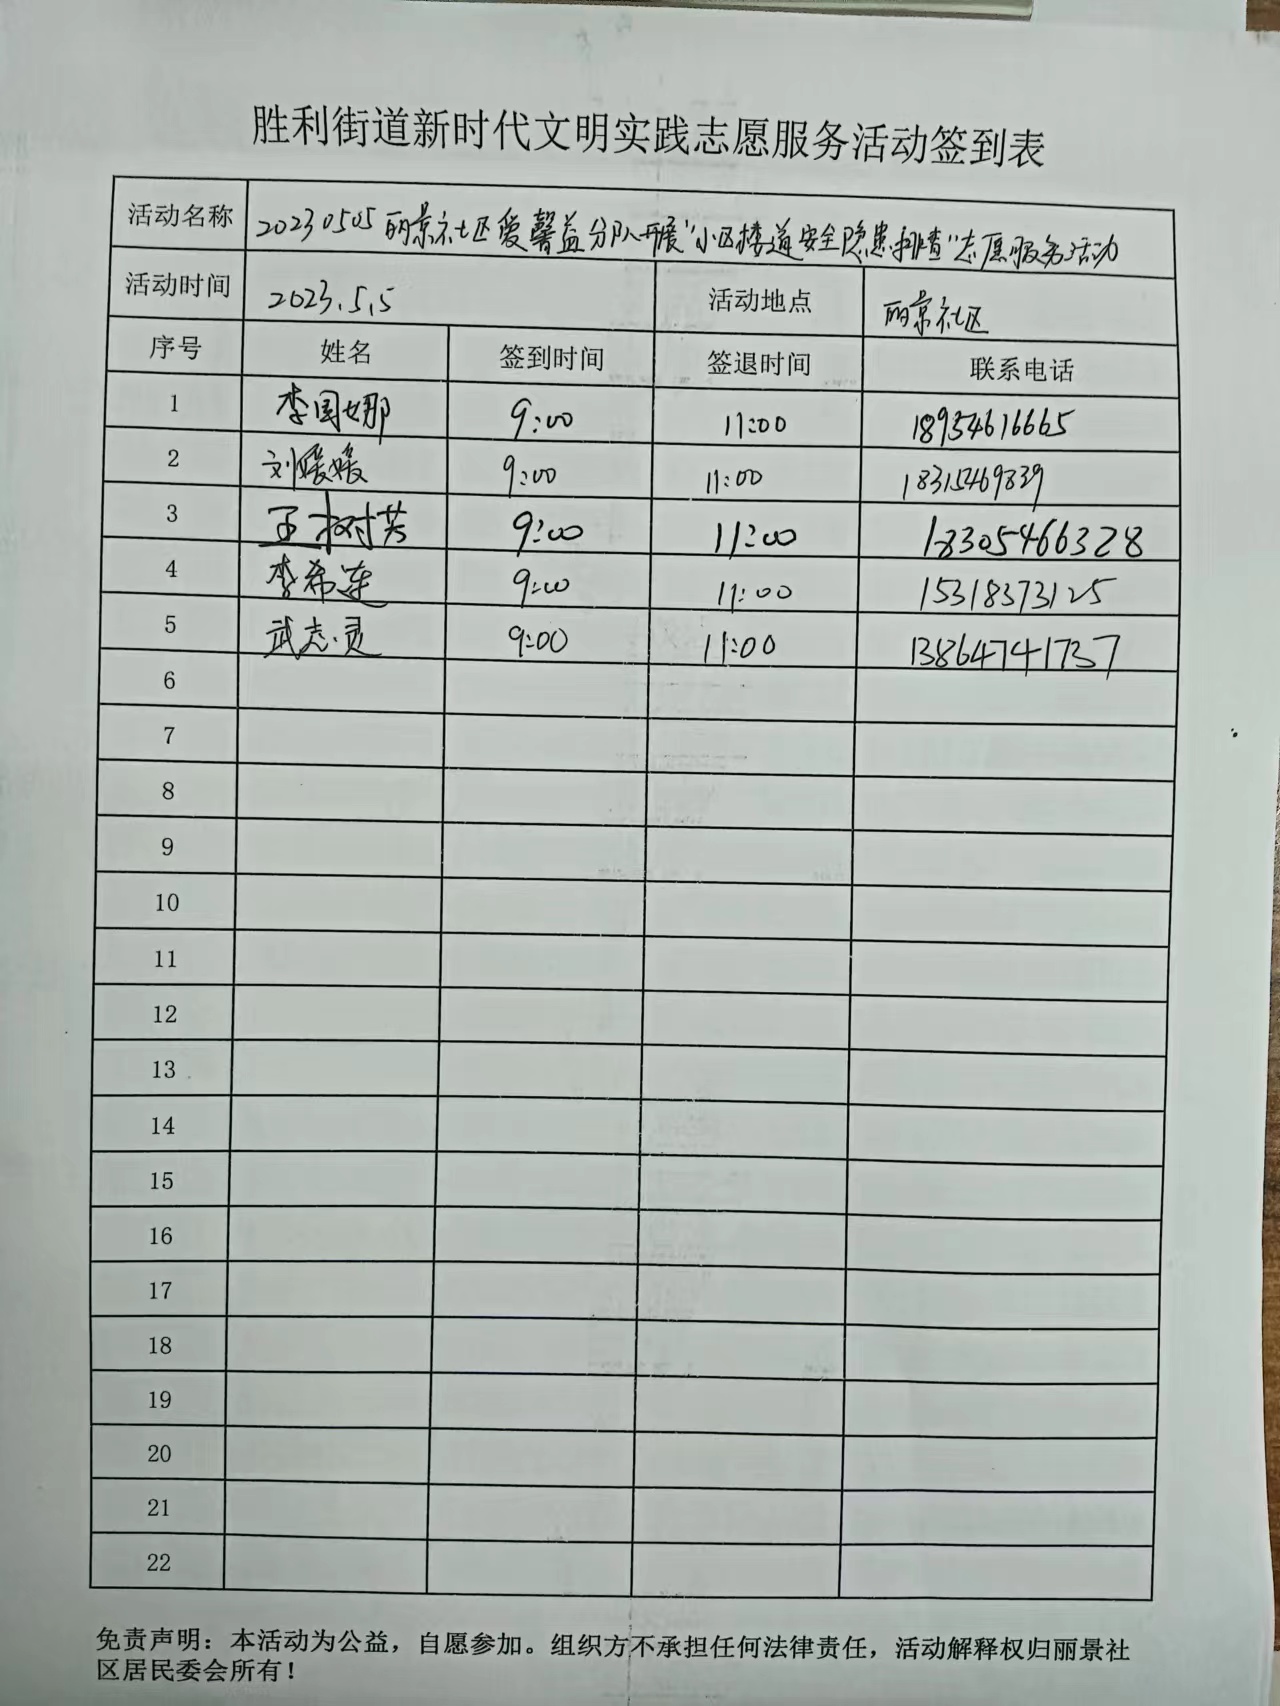 胜利街道新时代文明实践志愿服务活动签到表
活动名称 20230505丽景社区爱馨益分队开展"小区楼道安全隐患排查"志愿服务活动
活动时间 2023.5.5 活动地点 丽景社区
序号 姓名 签到时间 签退时间 联系电话
1 李国娜 9:00 11:00 18954616665
2 刘媛媛 9:00 11:00 18315469839
3 王树芳 9:00 11:00 18305466328
4 李希莲 9:00 11:00 15318373125
5 武志灵 9:00 11:00 13864741737
6
7
8
9
10
11
12
13
14
15
16
17
18
19
20
21
22
免责声明：本活动为公益，自愿参加。组织方不承担任何法律责任，活动解释权归丽景社
区居民委会所有！